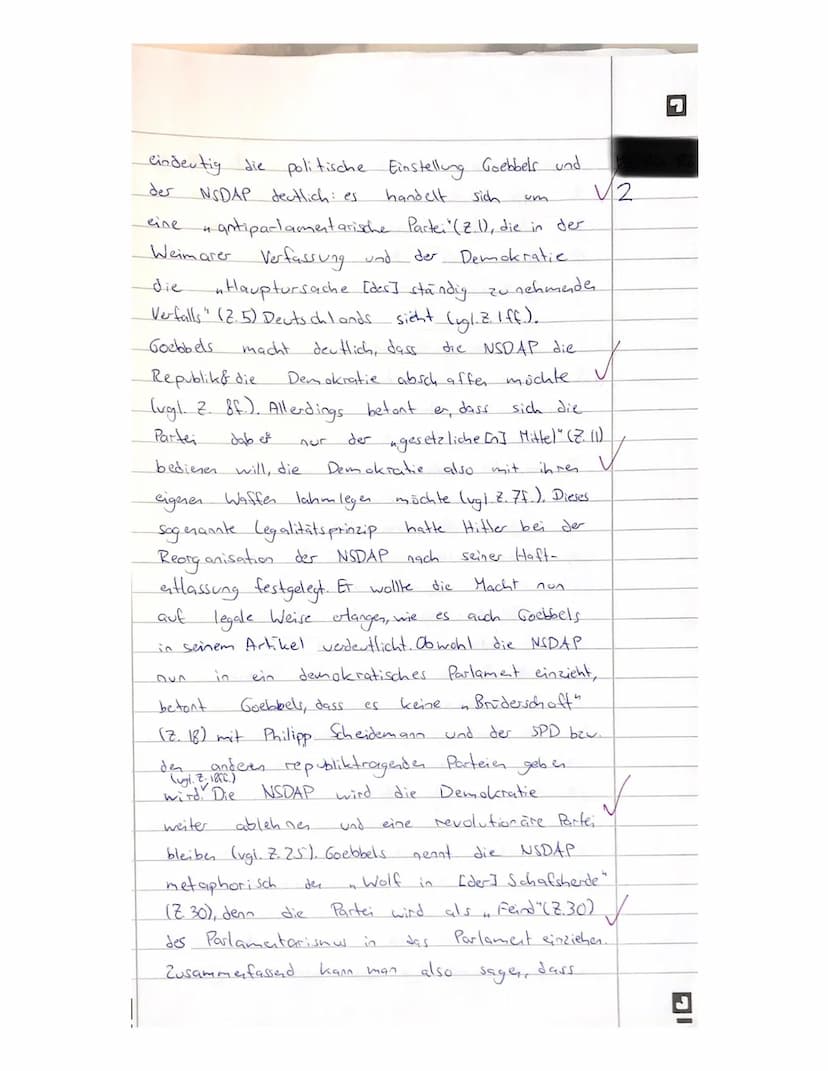 eindeutig die politische Einstellung Goebbels und
der NSDAP deutlich: es handelt sich um
√2
eine „antiparlamentarische Partei“ (Z.1), die in der
Weimarer Verfassung und der Demokratie
die „Hauptursache [des] ständig zunehmenden
Verfalls“ (Z.5) Deutschlands sieht (vgl. Z. 1ff.).
Goebbels macht deutlich, dass die NSDAP die
Republik & die Demokratie abschaffen möchte
(vgl. Z. 8f.). Allerdings betont er, dass sich die
Partei dabei nur der „gesetzliche[n] Mittel“ (Z. 11)
bedienen will, die Demokratie also mit ihren
eigenen Waffen lahmlegen möchte (vgl. Z. 7f.). Dieses
sogenannte Legalitätsprinzip hatte Hitler bei der
Reorganisation der NSDAP nach seiner Haft-
entlassung festgelegt. Er wollte die Macht nun
auf legale Weise erlangen, wie es auch Goebbels
in seinem Artikel verdeutlicht. Obwohl die NSDAP
nun in ein demokratisches Parlament einzieht,
betont Goebbels, dass es keine „Brüderschaft“
(Z. 18) mit Philipp Scheidemann und der SPD bzw.
den anderen republiktragenden Parteien geben
(vgl. Z. 18ff.)
wird. Die NSDAP wird die Demokratie
weiter ablehnen und eine revolutionäre Partei
bleiben (vgl. Z. 25). Goebbels nennt die NSDAP
metaphorisch den „Wolf in [der] Schafsherde“
(Z.30), denn die Partei wird als „Feind“ (Z.30)
des Parlamentarismus in das Parlament einziehen.
Zusammenfassend kann man also sagen, dass